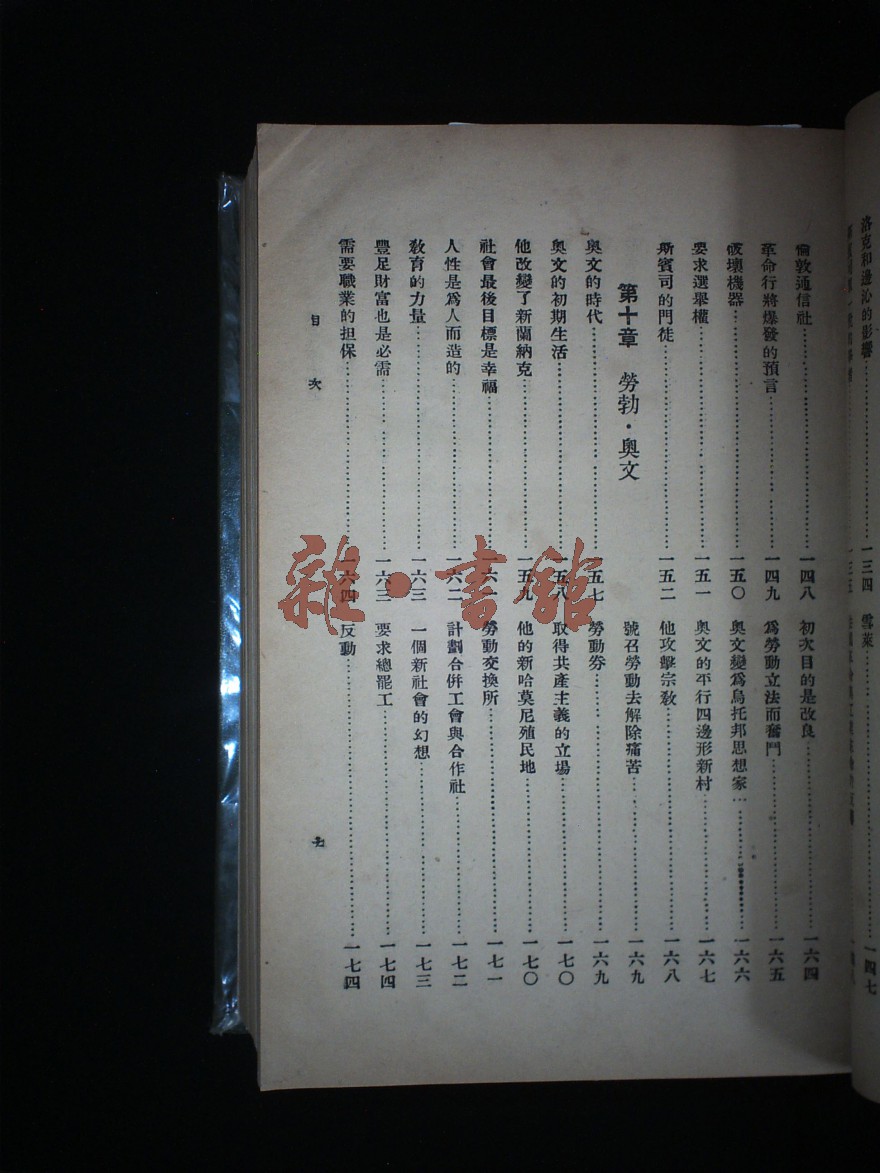 洛克和邊沁的影響……一三四
雪萊……一四七
倫敦通信社……一四八
革命行將爆發的預言……一四九
破壞機器……一五〇
要求選舉權……一五一
斯賓司的門徒……一五二
第十章 勞勃·奧文
奧文的時代……一五七
奧文的初期生活……一五八
他改變了新蘭納克……一五九
社會最後目標是幸福……一六一
人性是爲人而造的……一六二
教育的力量……一六三
豐足財富也是必需……一六三
需要職業的担保……一六四
初次目的是改良……一六四
爲勞動立法而奮鬥……一六五
奧文變爲烏托邦思想家……一六六
奧文的平行四邊形新村……一六七
他攻擊宗教……一六八
號召勞動去解除痛苦……一六九
勞動券……一六九
取得共產主義的立場……一七〇
他的新哈莫尼殖民地……一七〇
勞動交換所……一七一
計劃合併工會與合作社……一七二
一個新社會的幻想……一七三
要求總罷工……一七四
反動……一七四
目次
九
雜·書館